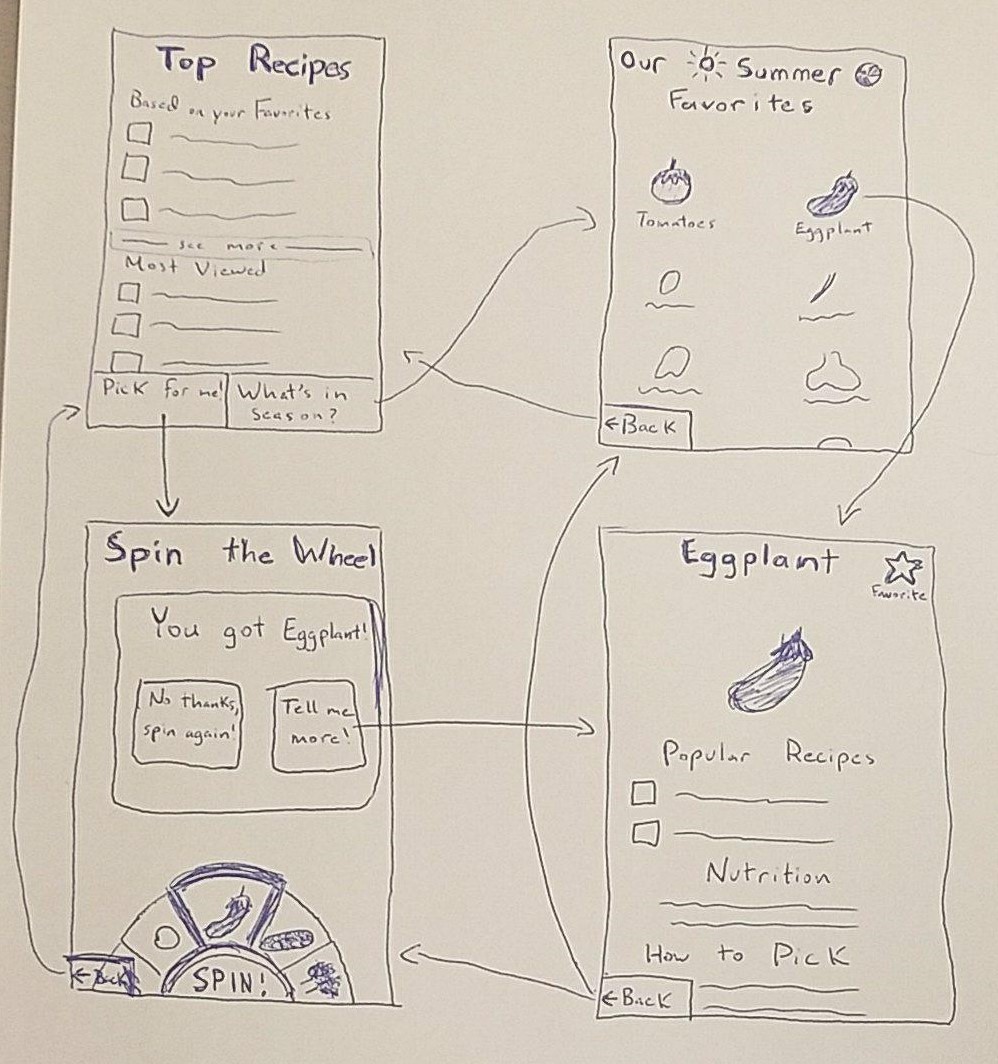 Top Recipes
Based on your Favorites
see more
Most Viewed
Pick for me!
What's in
season?
Our Summer
Favorites
Tomatoes
Eggplant
←Back
Spin the Wheel
You got Eggplant!
No thanks,
spin again!
Tell me
more!
SPIN!
←Back
Eggplant
Favorite
Popular Recipes
Nutrition
How to Pick
←Back